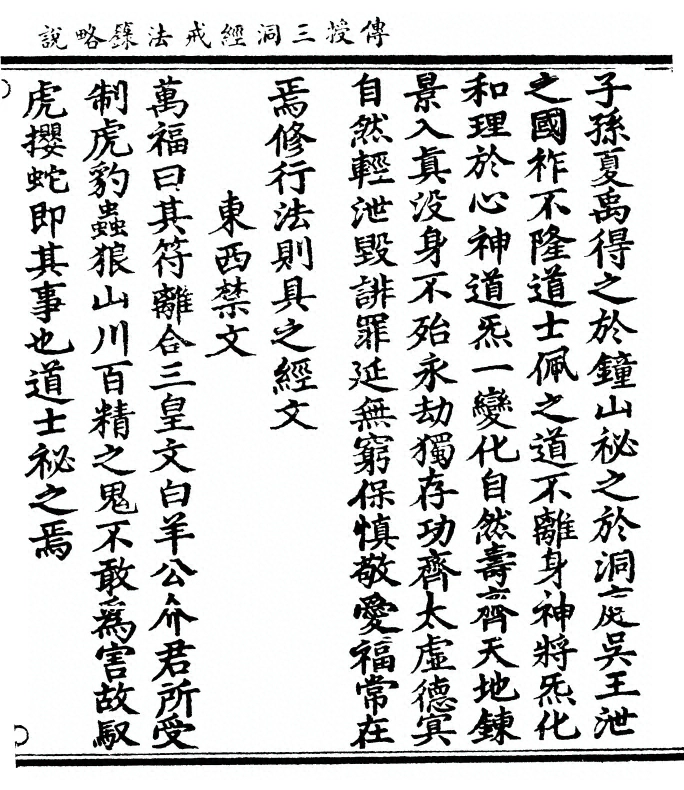 傳授三洞經戒法籙略說
子孫夏禹得之於鐘山祕之於洞庭吳王泄
之國祚不隆道士佩之道不離身神將炁化
和理於心神道炁一變化自然壽齊天地鍊
景入眞没身不殆永劫獨存功齊太虛德冥
自然輕泄毀誹罪延無窮保慎敬愛福常在
焉修行法則具之經文
東西禁文
萬福曰其符離合三皇文白羊公介君所受
制虎豹蟲狼山川百精之鬼不敢爲害故馭
虎攖蛇即其事也道士祕之焉